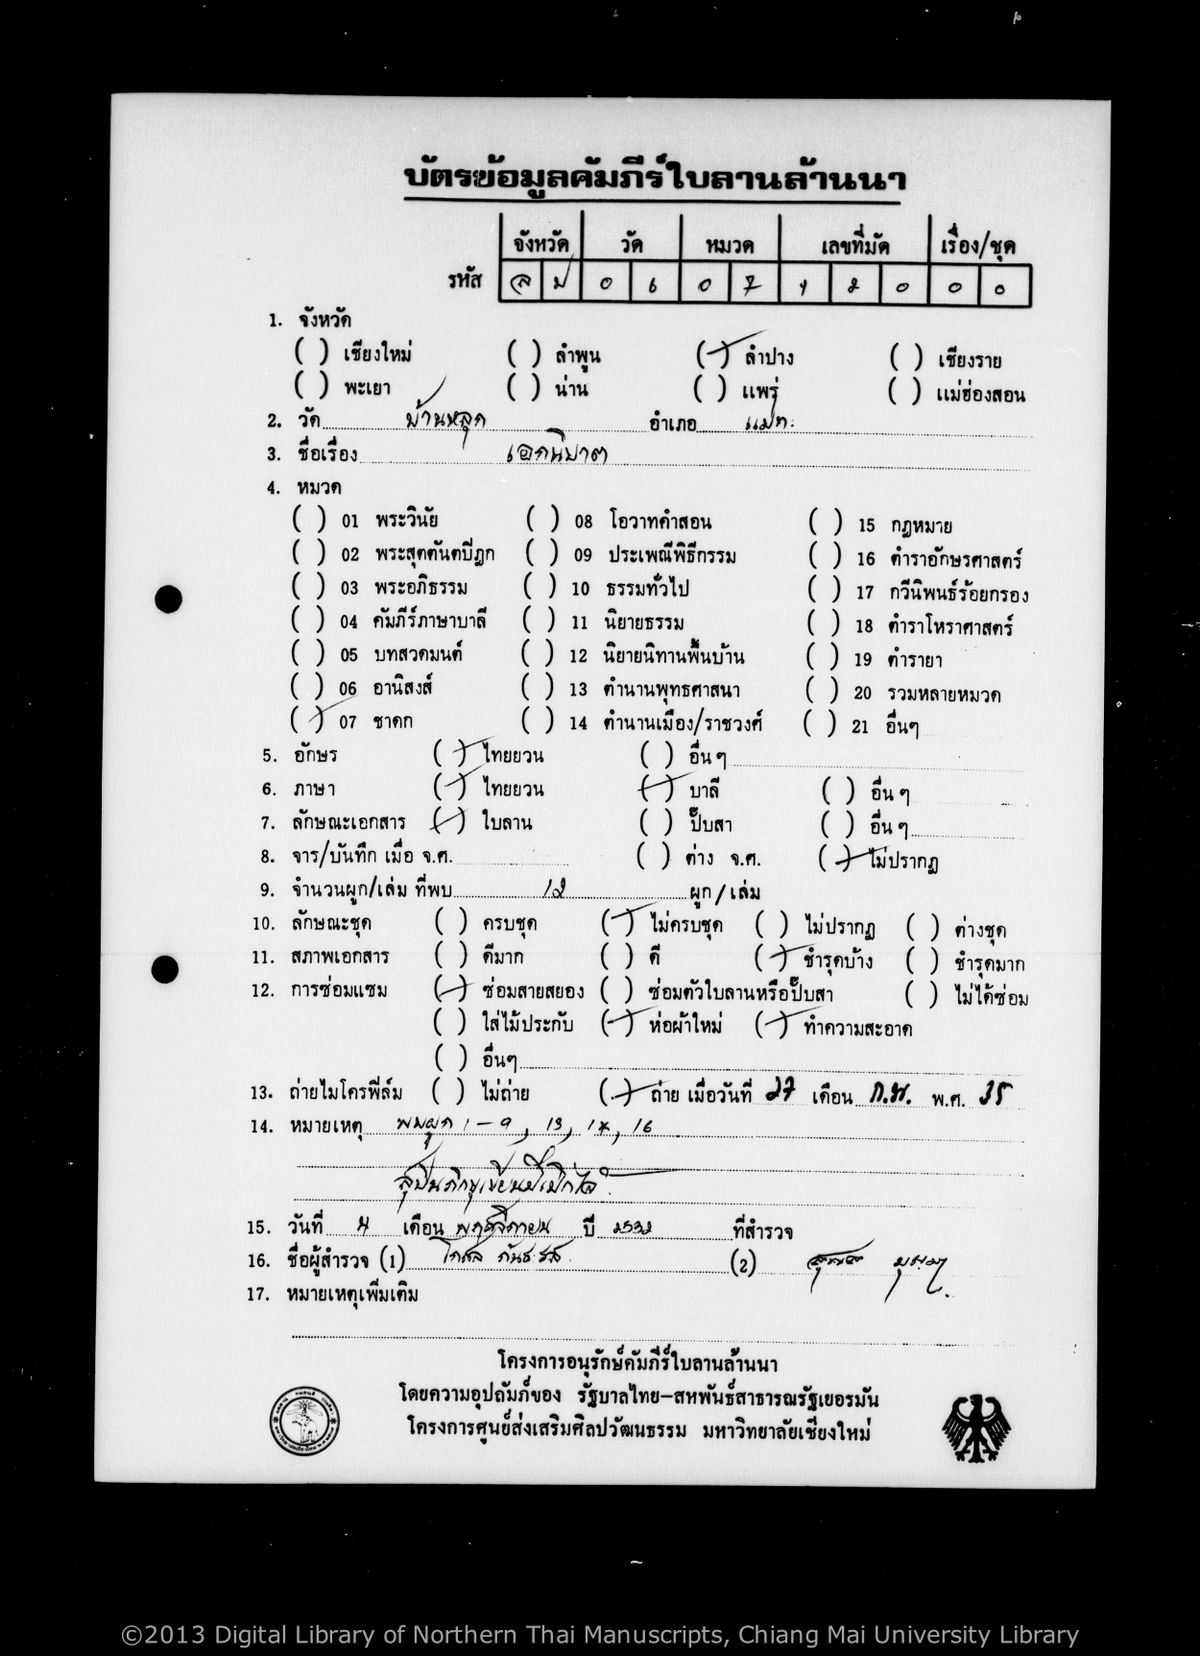 บัตรข้อมูลคัมภีร์ใบลานล้านนา
จังหวัด วัด หมวด เลขที่มัด เรื่อง/ชุด
รหัส ล ป 0 6 0 7 1 2 0 0 0
1. จังหวัด
( ) เชียงใหม่ ( ) ลำพูน (/) ลำปาง ( ) เชียงราย
( ) พะเยา ( ) น่าน ( ) แพร่ ( ) แม่ฮ่องสอน
2. วัด บ้านหลุก อำเภอ แม่ทะ
3. ชื่อเรื่อง เอกนิบาต
4. หมวด
( ) 01 พระวินัย ( ) 08 โอวาทคำสอน ( ) 15 กฎหมาย
( ) 02 พระสุตตันตปิฎก ( ) 09 ประเพณีพิธีกรรม ( ) 16 ตำราอักษรศาสตร์
( ) 03 พระอภิธรรม ( ) 10 ธรรมทั่วไป ( ) 17 กวีนิพนธ์ร้อยกรอง
( ) 04 คัมภีร์ภาษาบาลี ( ) 11 นิยายธรรม ( ) 18 ตำราโหราศาสตร์
( ) 05 บทสวดมนต์ ( ) 12 นิยายนิทานพื้นบ้าน ( ) 19 ตำรายา
( ) 06 อานิสงส์ ( ) 13 ตำนานพุทธศาสนา ( ) 20 รวมหลายหมวด
(/) 07 ชาดก ( ) 14 ตำนานเมือง/ราชวงศ์ ( ) 21 อื่นๆ
5. อักษร (/) ไทยยวน ( ) อื่น ๆ
6. ภาษา (/) ไทยยวน (/) บาลี ( ) อื่น ๆ
7. ลักษณะเอกสาร (/) ใบลาน ( ) ปั๊บสา ( ) อื่น ๆ
8. จาร/บันทึก เมื่อ จ.ศ. ( ) ต่าง จ.ศ. (/) ไม่ปรากฏ
9. จำนวนผูก/เล่ม ที่พบ 12 ผูก/เล่ม
10. ลักษณะชุด ( ) ครบชุด (/) ไม่ครบชุด ( ) ไม่ปรากฏ ( ) ต่างชุด
11. สภาพเอกสาร ( ) ดีมาก ( ) ดี (/) ชำรุดบ้าง ( ) ชำรุดมาก
12. การซ่อมแซม (/) ซ่อมสายสยอง ( ) ซ่อมตัวใบลานหรือปั๊บสา ( ) ไม่ได้ซ่อม
( ) ใส่ไม้ประกับ (/) ห่อผ้าใหม่ (/) ทำความสะอาด
( ) อื่นๆ
13. ถ่ายไมโครฟิล์ม ( ) ไม่ถ่าย (/) ถ่าย เมื่อวันที่ 27 เดือน ก.พ. พ.ศ. 35
14. หมายเหตุ พบผูก 1-9, 13, 14, 16
15. วันที่ 4 เดือน พฤศจิกายน ปี 2532 ที่สำรวจ
16. ชื่อผู้สำรวจ (1) โกศล (2)
17. หมายเหตุเพิ่มเติม
โครงการอนุรักษ์คัมภีร์ใบลานล้านนา
โดยความอุปถัมภ์ของ รัฐบาลไทย-สหพันธ์สาธารณรัฐเยอรมัน
โครงการศูนย์ส่งเสริมศิลปวัฒนธรรม มหาวิทยาลัยเชียงใหม่
©2013 Digital Library of Northern Thai Manuscripts, Chiang Mai University Library